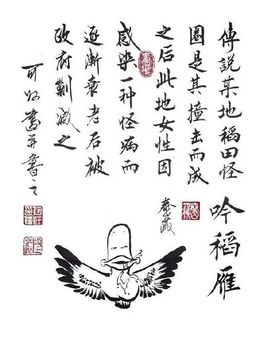 吟稻雁
傳說某地稻田怪
圈是其撞击而成
之后此地女性因
感染一种怪病而
逐漸衰老后被
政府剿滅之
畫并書之